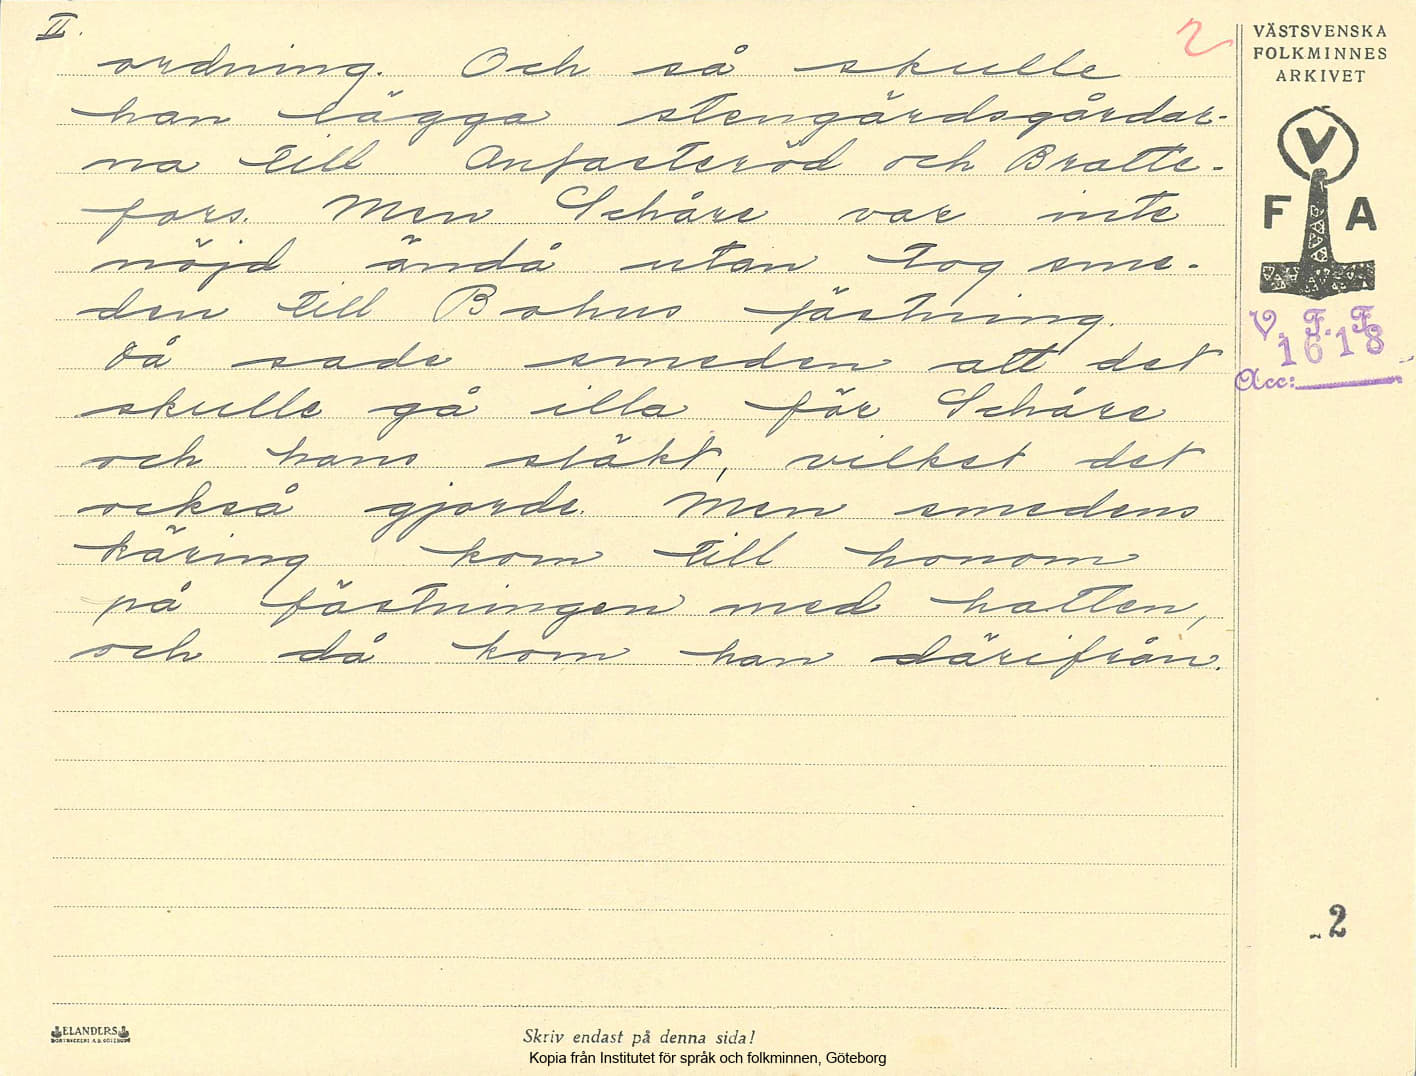 II.
2
ordning. Och så skulle
han lägga stengärdsgårdar-
na till Anfasteröd och Bratte-
fors. Men Schåre var inte
nöjd ändå utan tog sme-
den till Bohus fästning.
Då sade smeden att det
skulle gå illa för Schåre
och hans släkt, vilket det
också gjorde. Men smedens
käring kom till honom
på fästningen med hatten,
och då kom han därifrån.
VÄSTSVENSKA
FOLKMINNES
ARKIVET
V
F A
V. F. F.
1618
Acc:
2
ELANDERS
BOKTRYCKERI A.B. GÖTEBORG
Skriv endast på denna sida!
Kopia från Institutet för språk och folkminnen, Göteborg